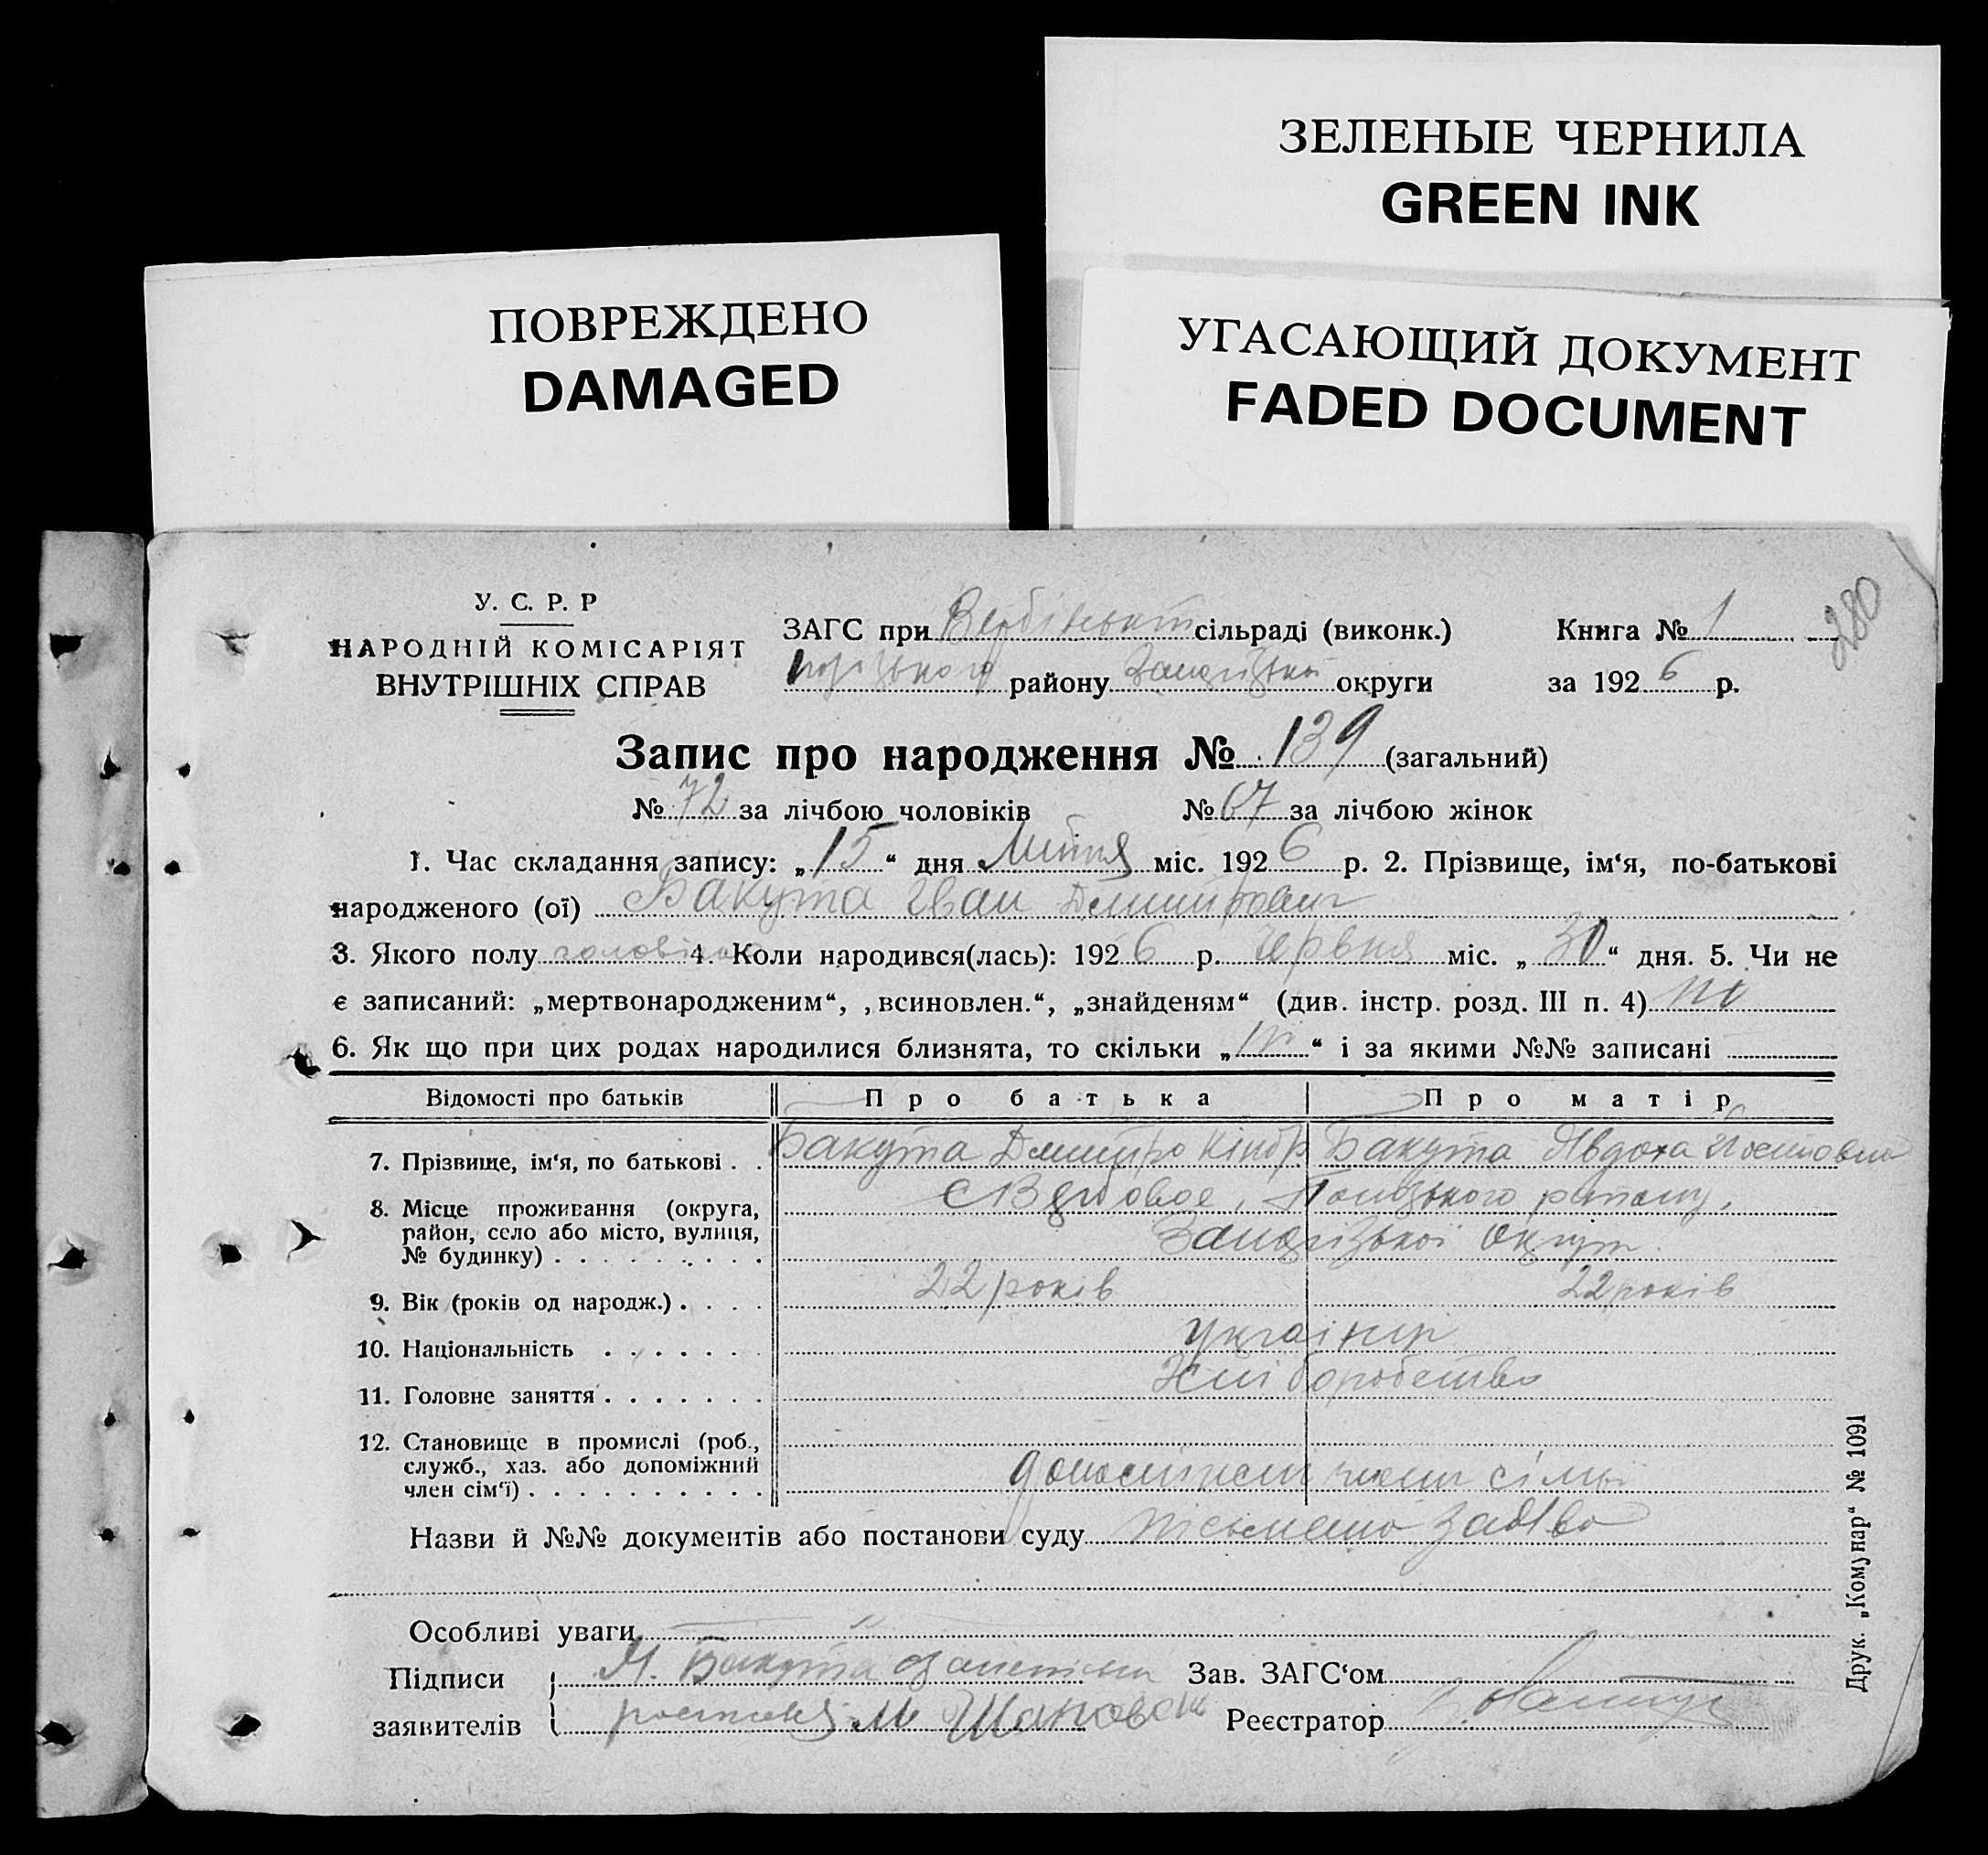 ЗЕЛЕНЫЕ ЧЕРНИЛА
GREEN INK
ПОВРЕЖДЕНО
DAMAGED
УГАСАЮЩИЙ ДОКУМЕНТ
FADED DOCUMENT
280
У. С. Р. Р
НАРОДНІЙ КОМІСАРІЯТ
ВНУТРІШНІХ СПРАВ
ЗАГС при сільраді (виконк.) Книга № 1
району округи за 1926 р.
Запис про народження № 139 (загальний)
№ 72 за лічбою чоловіків № 67 за лічбою жінок
1. Час складання запису: „15“ дня Липня міс. 1926 р. 2. Прізвище, ім‘я, по-батькові
народженого (ої) Бакута Іван Дмитрович
3. Якого полу 4. Коли народився(лась): 1926 р. червня міс. „30“ дня. 5. Чи не
є записаний: „мертвонародженим“, „всиновлен.“, „знайденям“ (див. інстр. розд. III п. 4) ні
6. Як що при цих родах народилися близнята, то скільки „ “ і за якими №№ записані
Відомості про батьків Про батька Про матір
7. Прізвище, ім‘я, по батькові . . Бакута Дмитро Бакута Явдоха
8. Місце проживання (округа,
район, село або місто, вулиця,
№ будинку) . . . . . . . . .
9. Вік (років од народж.) . . . . 22 років 22 років
10. Національність . . . . . . .
11. Головне заняття . . . . . . . Хліборобство
12. Становище в промислі (роб.,
служб., хаз. або допоміжний
член сім‘ї) . . . . . . . . . . член сімьі
Назви й №№ документів або постанови суду
Особливі уваги
Підписи М. Бакута Зав. ЗАГС‘ом
заявителів Реєстратор
Друк. „Комунар“ № 1091